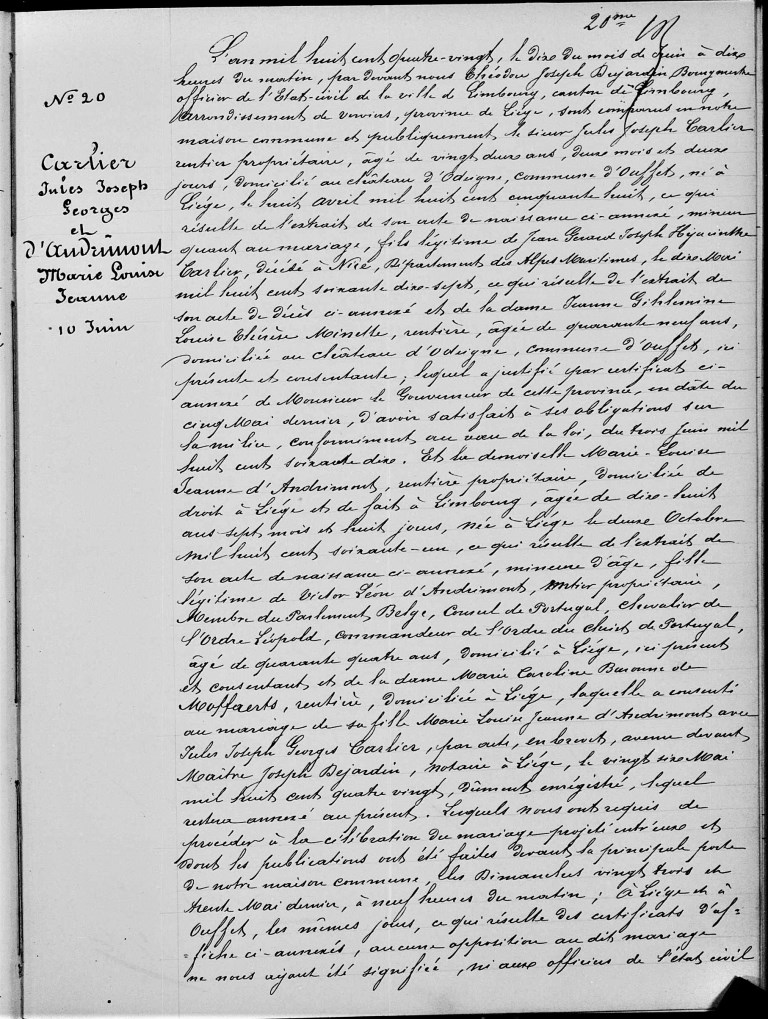 20me
No 20
Carlier
Jules Joseph
Georges
et
d'Andrimont
Marie Louise
Jeanne
10 Juin
L'an mil huit cent quatre-vingt, le dix du mois de Juin à dix
heures du matin, par devant nous Théodore Joseph Dejardin Bourgmestre
officier de l'Etat-civil de la ville de Limbourg, canton de Limbourg,
arrondissement de Verviers, province de Liége, sont comparus en notre
maison commune et publiquement le sieur Jules Joseph Carlier
rentier propriétaire, âgé de vingt deux ans, deux mois et deux
jours, domicilié au château d'Odeigne, commune d'Ouffet, né à
Liége, le huit avril mil huit cent cinquante huit, ce qui
résulte de l'extrait de son acte de naissance ci-annexé, mineur
quant au mariage, fils légitime de Jean Gérard Joseph Hyacinthe
Carlier, décédé à Nice, Département des Alpes Maritimes, le dix Mai
mil huit cent soixante dix-sept, ce qui résulte de l'extrait de
son acte de décès ci-annexé et de la dame Jeanne Gihlemine
Louise Thérèse Minette, rentière, âgée de quarante neuf ans,
domiciliée au château d'Odeigne, commune d'Ouffet, ici
présente et consentante; lequel a justifié par certificat ci-
annexé de Monsieur le Gouverneur de cette province, en date du
cinq Mai dernier, d'avoir satisfait à ses obligations sur
la milice, conformément au vœu de la loi, du trois Juin mil
huit cent soixante dix. Et la demoiselle Marie-Louise
Jeanne d'Andrimont, rentière propriétaire, domiciliée de
droit à Liége et de fait à Limbourg, âgée de dix-huit
ans sept mois et huit jours, née à Liége le deux Octobre
mil huit cent soixante-un, ce qui résulte de l'extrait de
son acte de naissance ci-annexé, mineure d'âge, fille
légitime de Victor Léon d'Andrimont, rentier propriétaire,
Membre du Parlement Belge, Consul de Portugal, chevalier de
l'Ordre Léopold, commandeur de l'Ordre du Christ de Portugal,
âgé de quarante quatre ans, domicilié à Liége, ici présent
et consentant et de la dame Marie Caroline Baronne de
Moffaerts, rentière, domiciliée à Liége, laquelle a consenti
au mariage de sa fille Marie Louise Jeanne d'Andrimont avec
Jules Joseph Georges Carlier, par acte, en brevet, avenu devant
Maitre Joseph Dejardin, Notaire à Liége, le vingt six Mai
mil huit cent quatre vingt, Dûment enrégistré, lequel
restera annexé au présent. Lesquels nous ont requis de
procéder à la célébration du mariage projeté entr'eux et
dont les publications ont été faites devant la principale porte
de notre maison commune, les Dimanches vingt trois et
trente Mai dernier, à neuf heures du matin; à Liége et à
Ouffet, les mêmes jours, ce qui résulte des certificats d'af=
=fiche ci-annexés, aucune opposition au dit mariage
ne nous ayant été signifiée, ni aux officiers de l'état civil